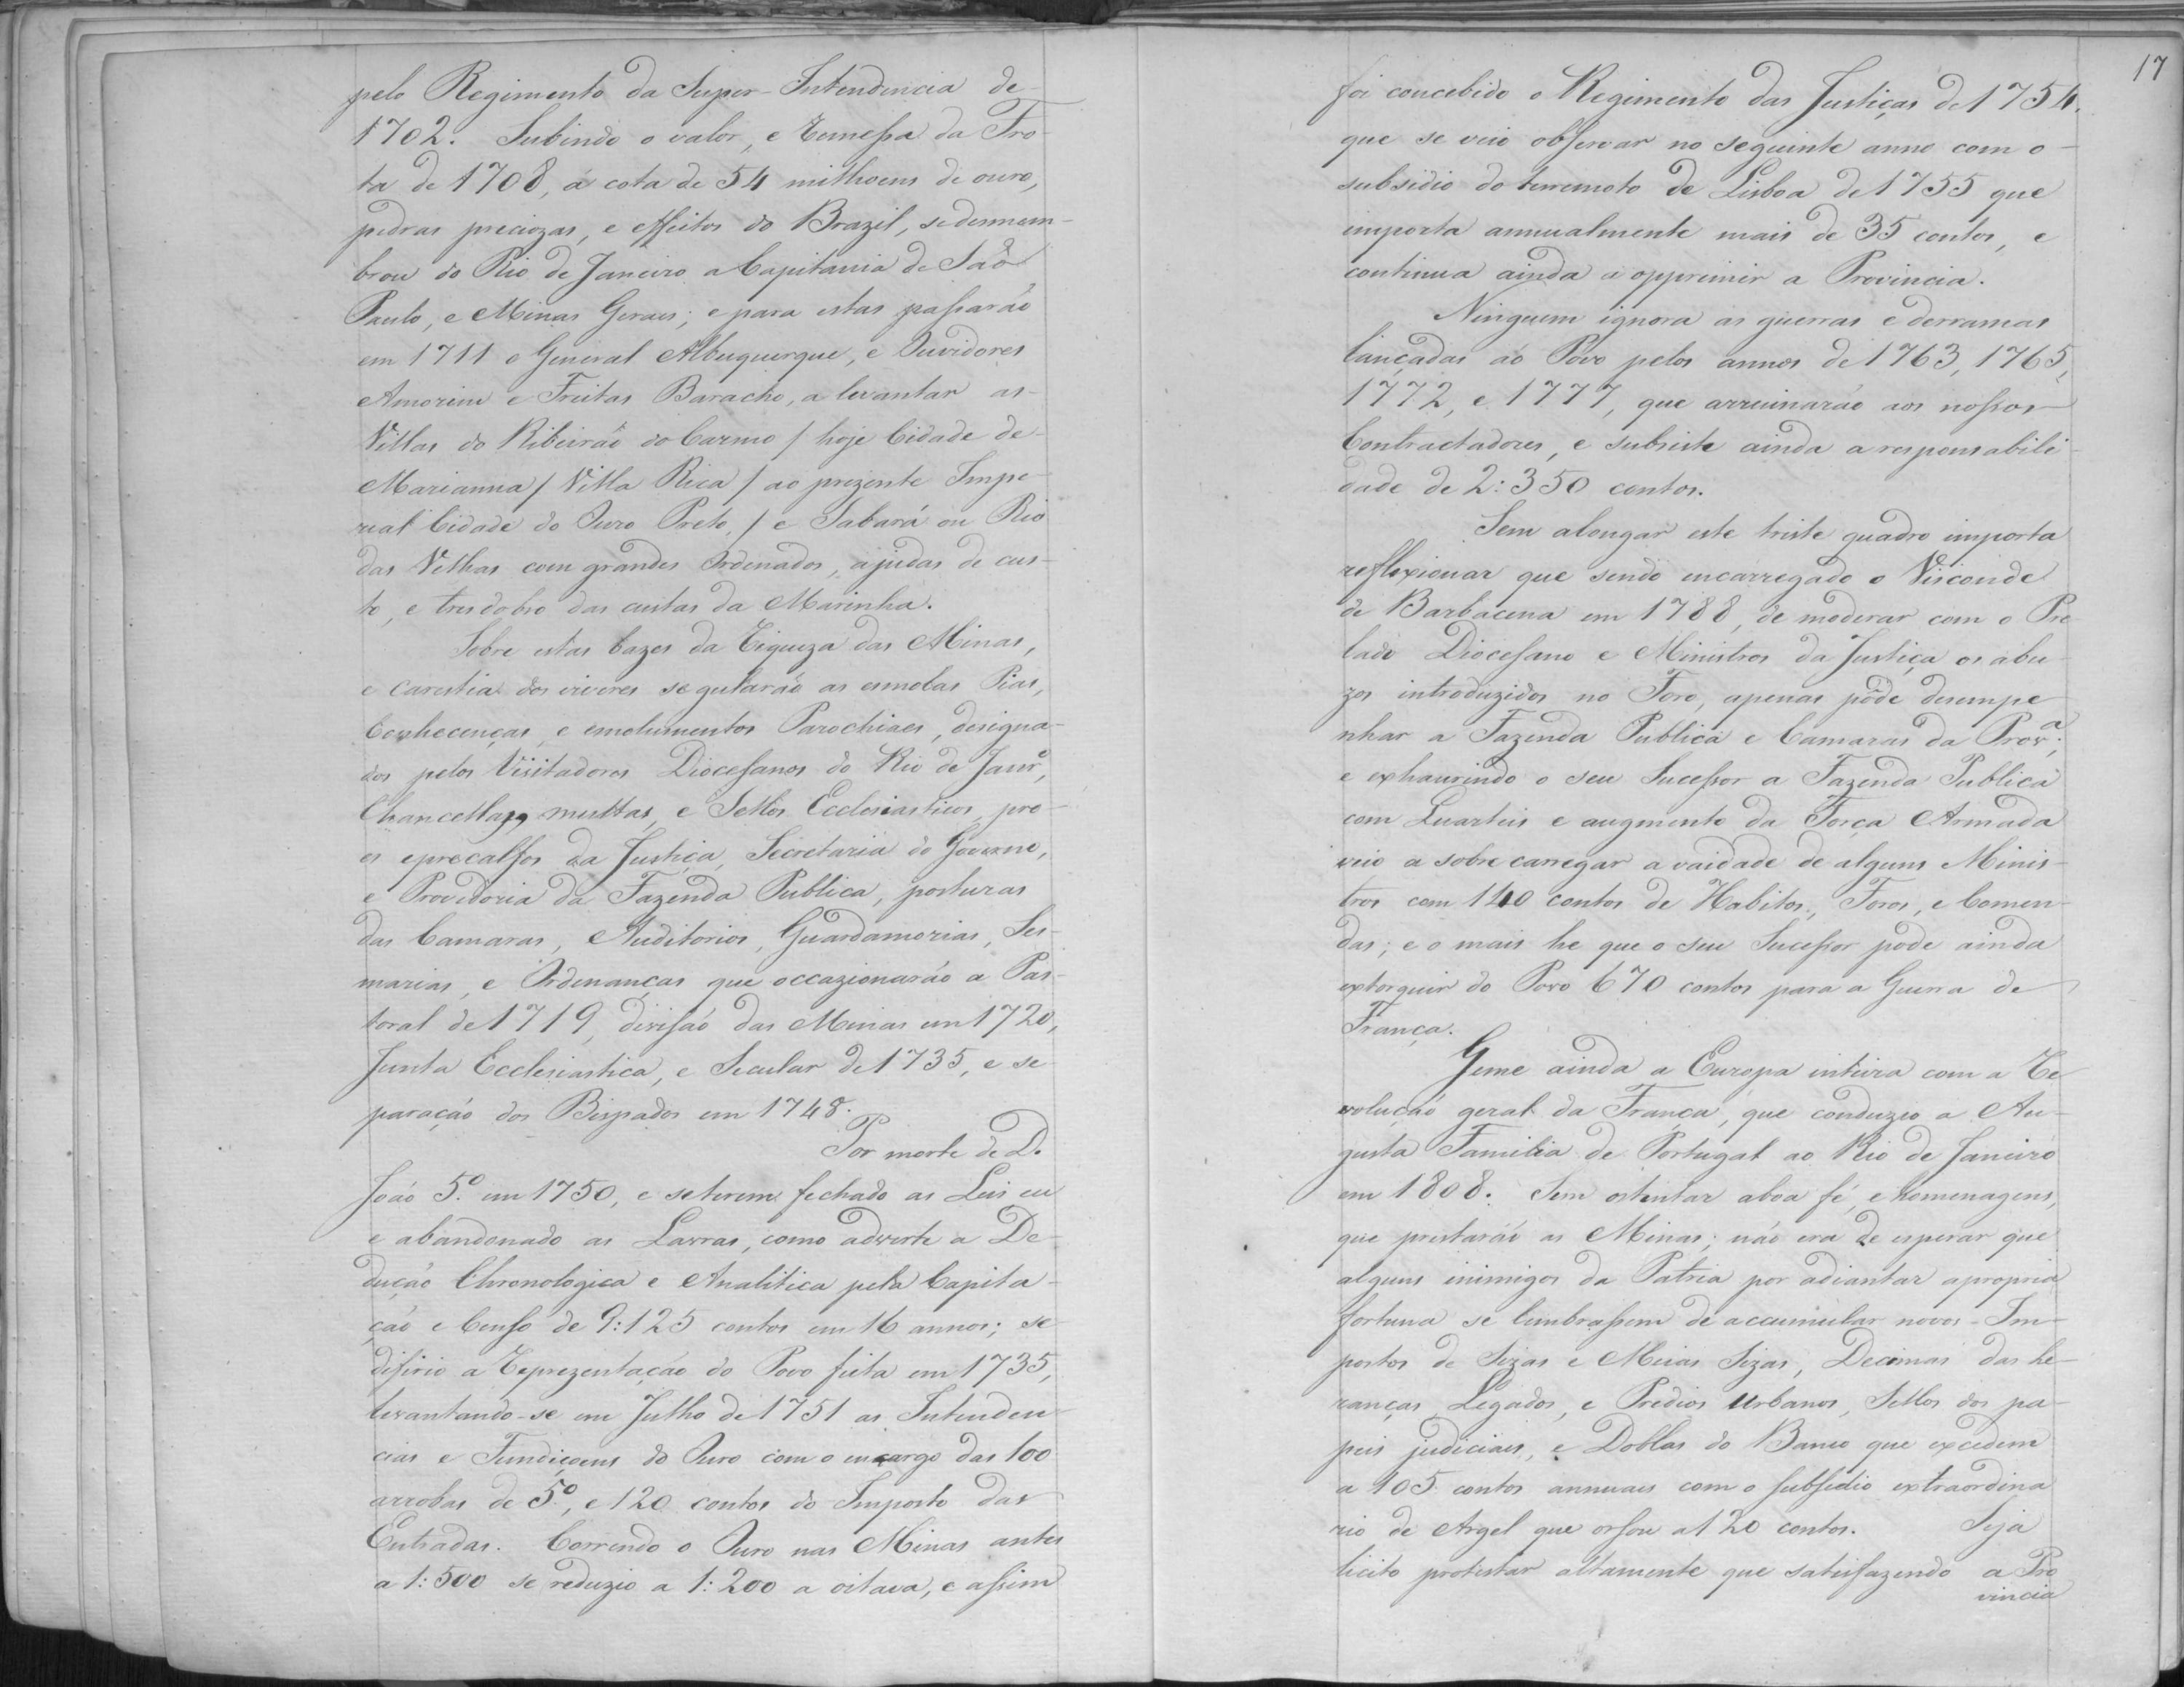 pelo Regimento da Super-Intendencia de
1702. Subindo o valor, e Remessa da Fro-
ta de 1708, á cota de 54 milhoens de ouro,
pedras preciozas, e effeitos do Brazil, se desmem-
brou do Rio de Janeiro a Capitania de Saõ
Paulo, e Minas Geraes; e para estas passaráo
em 1711 o General Albuquerque, e Ouvidores
Amorim e Freitas Baracho, a levantar as
Villas do Ribeirão do Carmo / hoje Cidade de
Marianna / Villa Rica / ao prezente Impe-
rial Cidade do Ouro Preto / e Sabará ou Rio
das Velhas com grandes Ordenados, ajudas de cus-
to, e tresdobro das custas da Marinha.
Sobre estas bazes da Riqueza das Minas,
e carestia dos viveres se gularáo as esmolas Pias,
Conhecenças, e emolumentos Parochiaes, designa-
dos pelos Visitadores Diocesanos do Rio de Janrº,
Chancellas, multas, e Sellos Ecclesiasticos, pro-
es e precalsos da Justiça, Secretaria do Governo,
e Provedoria da Fazenda Publica, posturas
das Camaras, Auditorios, Guardamorias, Ses-
marias, e Ordenanças que occazionaráo a Pas-
toral de 1719, divisáo das Minas em 1720,
Junta Ecclesiastica, e Secular de 1735, e se
paraçáo dos Bispados em 1748.
Por morte de D.
Joáo 5.º em 1750, e se terem fechado as Leis eu
e abandonado as Lavras, como adverte a De-
duçáo Chronologica e Analitica pela Capita-
çáo e Censo de 9:125 contos em 16 annos; se
difirio a Reprezentaçáo do Povo feita em 1735,
levantando-se em Julho de 1751 as Intenden
cias e Fundiçoens do Ouro com o encargo das 100
arrobas de 5.º, e 120 contos do Imposto das
Entradas. Correndo o Ouro nas Minas antes
a 1:500 se reduzio a 1:200 a oitava, e assim
17
foi concebido o Regimento das Justiças de 1754.
que se veio observar no seguinte anno com o
subsidio do terremoto de Lisboa de 1755 que
importa annualmente mais de 35 contos, e
continua ainda a opprimir a Provincia.
Ninguem ignora as guerras e derramas
lançadas ao Povo pelos annos de 1763, 1765,
1772, e 1777, que arruinaráo aos nossos
Contractadores, e subsiste ainda a responsabili-
dade de 2:350 contos.
Sem alongar este triste quadro importa
reflexionar que sendo encarregado o Visconde
de Barbacena em 1788, de moderar com o Pre
lado Diocesano e Ministros da Justiça os abu
zos introduzidos no Foro, apenas pôde desempe
nhar a Fazenda Publica e Camaras da Provª;
e exhaurindo o seu Sucessor a Fazenda Publica
com Quarteis e augmento da Força Armada
veio a sobrecarregar a vaidade de alguns Minis-
tros com 140 contos de Habitos, Foros, e Comen-
das; e o mais he que o seu Sucessor pode ainda
extorquir do Povo 670 contos para a Guerra de
França.
Geme ainda a Europa inteira com a Re
voluçáo geral da França, que conduzio a Au-
gusta Familia de Portugal ao Rio de Janeiro
em 1808. Sem ostentar a boa fé, e homenagens,
que prestaráo as Minas; náo era de esperar que
alguns inimigos da Patria por adiantar a propria
fortuna se lembrassem de accumular novos Im-
postos de Sizas e Meias Sizas, Decimas das he-
ranças, Legados, e Predios Urbanos, Sellos dos pa-
peis judiciais, e Doblas do Banco que excedem
a 105 contos annuais com o subsidio extraordina
rio de Argel que orsou a 120 contos. Seja
licito protestar altamente que satisfazendo a Pro
vincia